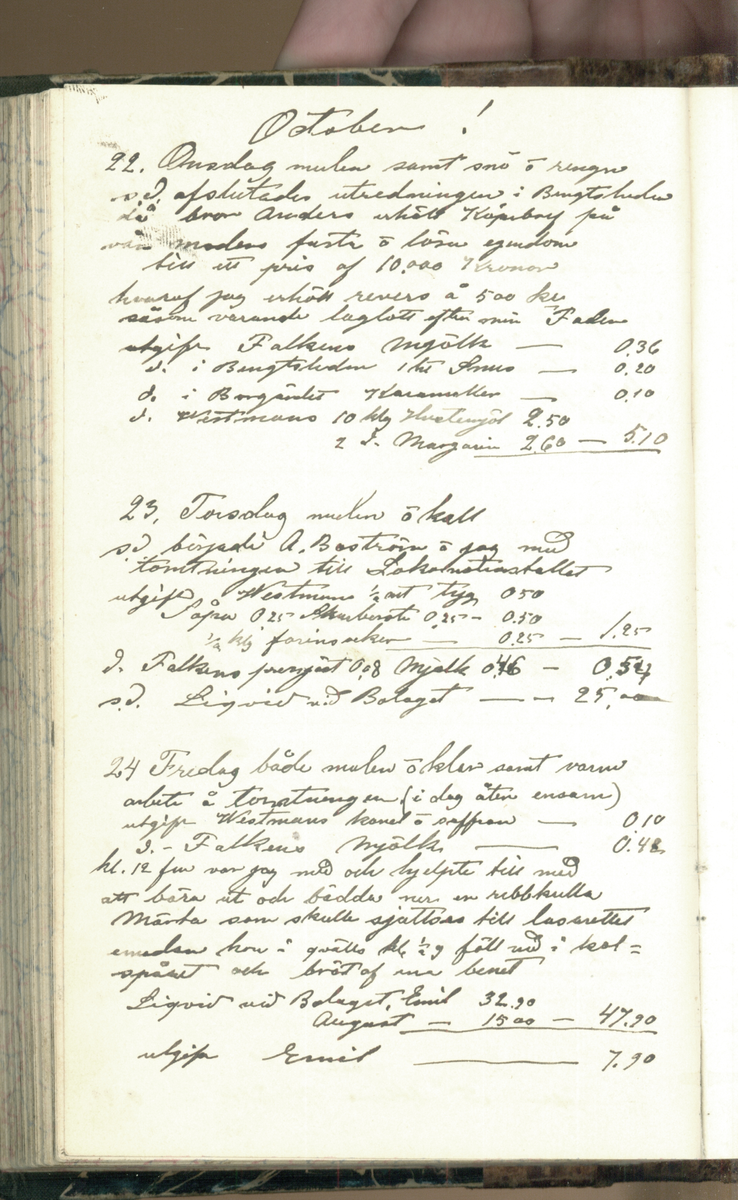 October !
22. Onsdag mulen samt snö ö rengn
s.d. afslutades utredningen i Bengtsheden
då bror Anders erhöll Köpebref på
vår moders fasta ö lösa egendom
till ett pris af 10,000 Kronor
hvaraf jag erhöll revers å 500 kr
såsom varande laglott efter min Fader
utgift Falkens Mjölk — 0.36
d. i Bengtsheden 1 ht Snus — 0.20
d. i Borgärdet Karameller — 0.10
d. Westmans 10 klg Hvetemjöl 2.50
2 d. Margarin 2.60 — 5.10
23. Torsdag mulen ö kall
s.d. började A. Boström ö jag med
tomtningen till Lokomotivstallet
utgift Westmans ½ art tyg 0.50
Såpa 0.25 Skurborste 0.25 - 0.50
½ klg farinsocker — 0.25 — 1.25
d. Falkens pressjäst 0.08 Mjölk 0.46 — 0.54
s.d. Liqvid vid Bolaget — — 25,00
24 Fredag både mulen ö klar samt varm
arbete å tomtningen (i dag åten ensam)
utgift Westmans kanel ö saffran — 0.10
d. - Falkens Mjölk — 0.48
kl. 12 fm var jag med och hjelpte till med
att bära ut och bädda ner en ribbkulla
Märta som skulle sjattsas till lasarettet
emedan hon i qvälls kl ½ 9 föll ned i kol=
spåret och bröt af ena benet
Liqvid vid Bolaget, Emil 32.90
August — 15.00 — 47.90
utgift Emil — 7.90